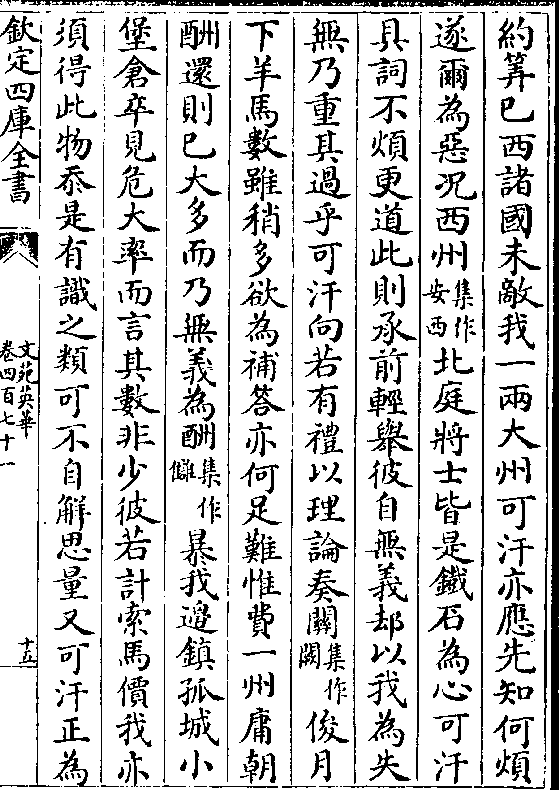 約筭已西諸國未敵我一兩大州可汗亦應先知何煩
遂爾為惡况西州集作安西北庭將士皆是鐵石為心可汗
具詞不煩更道此則承前輕舉彼自無義却以我為失
無乃重其過乎可汗向若有禮以理論奏關集作闕俊月
下羊馬數雖稍多欲為補答亦何足難惟費一州庸朝
酬還則已大多而乃無義為酬集作讎暴我邉鎮孤城小
堡倉卒見危大率而言其數非少彼若計索馬價我亦
須得此物忝是有識之類可不自解思量又可汗正為
欽定四庫全書
文苑英華
卷四百七十一
十五